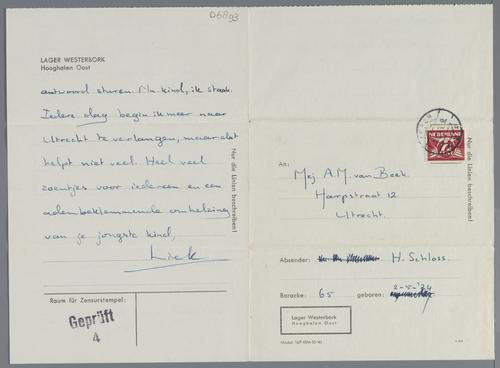 D6893
LAGER WESTERBORK
Hooghalen Oost
antwoord sturen. M'n kind, ik staak.
Iedere dag begin ik meer naar
Utrecht te verlangen, maar dat
helpt niet veel. Heel veel
zoentjes voor iedereen en een
adembeklemmende omhelzing
van je jongste kind,
Liek
Nur die Linien beschreiben!
Raum für Zensurstempel:
Geprüft
4
NEDERLAND
Nur die Linien beschreiben!
An:
Mej. A.M. van Beek.
Harpstraat 12
Utrecht.
Absender:
H. Schloss.
Baracke: 65 geboren: 2-5-'24
Lager Westerbork
Hooghalen Oost